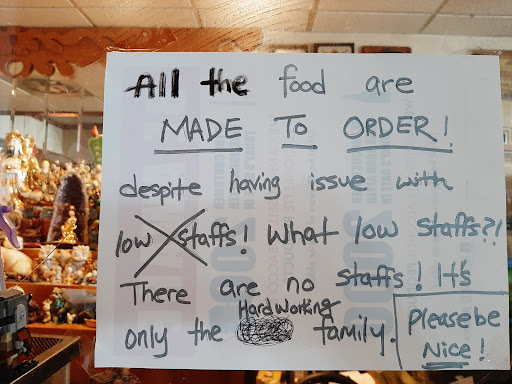 All the food are
MADE TO ORDER!
despite having issue with
low staffs! What low staffs?!
There are no staffs! It's
Hardworking
only the family.
Please be
Nice!